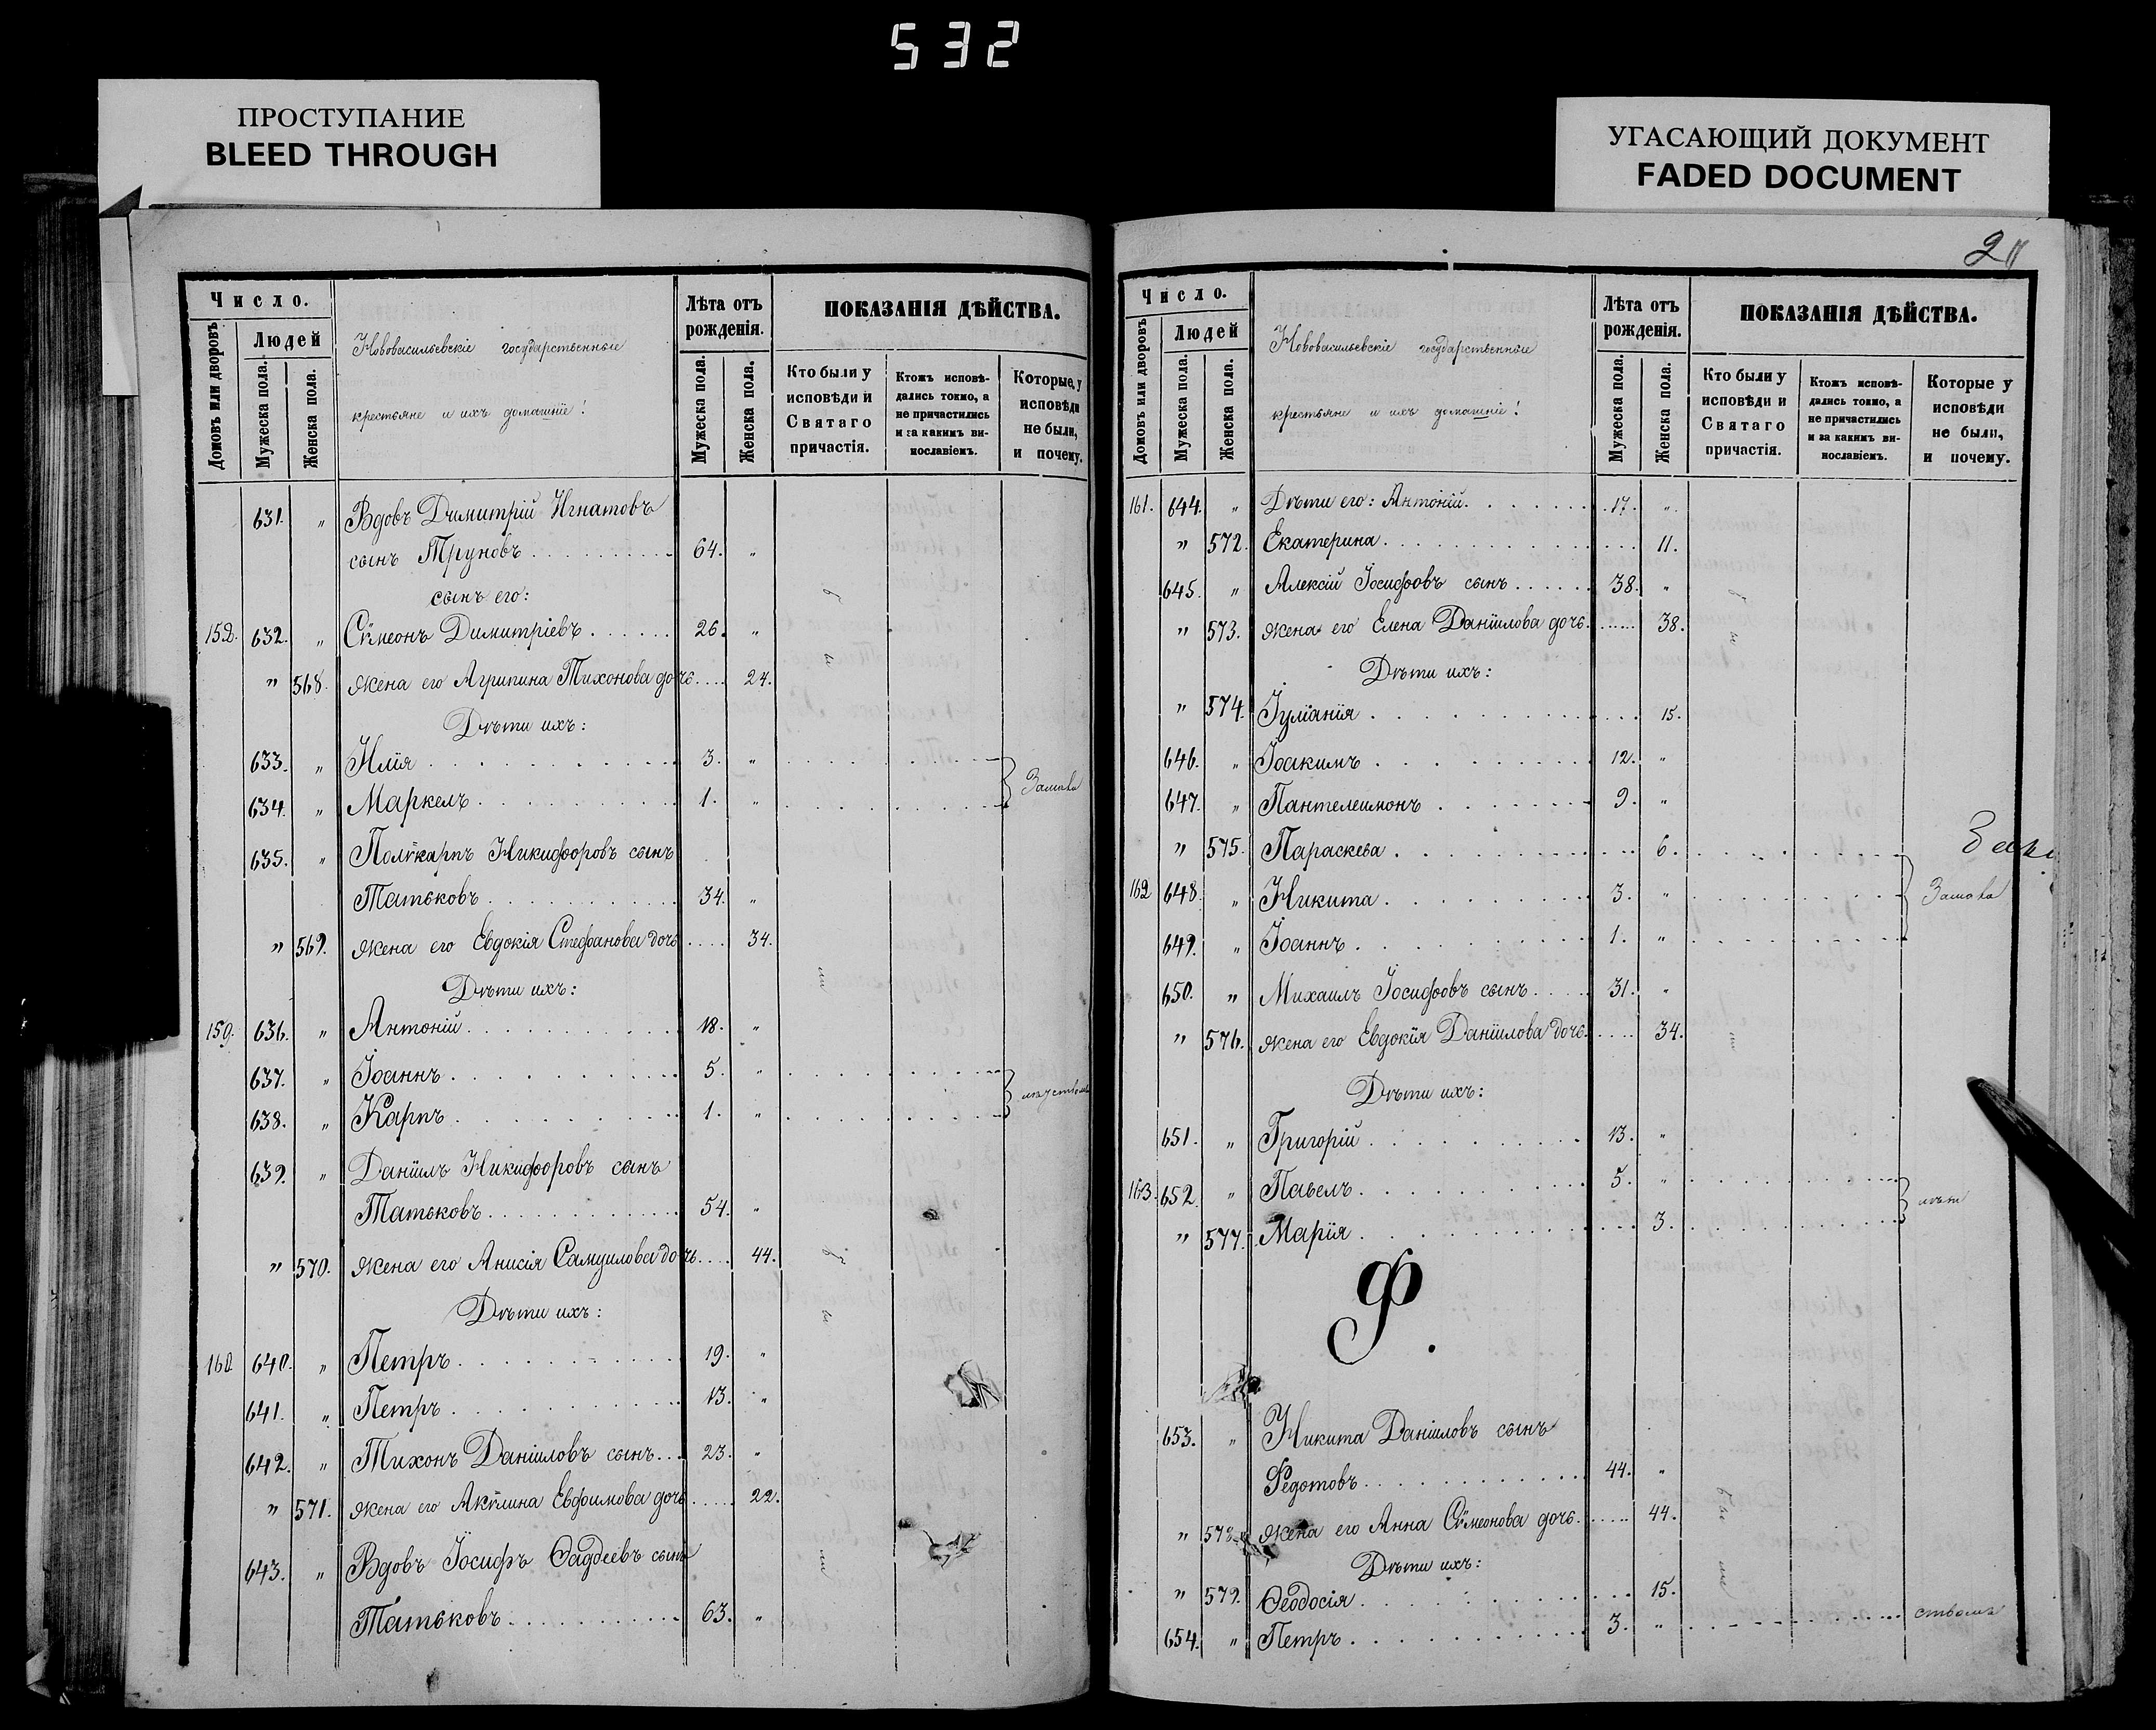 532
ПРОСТУПАНИЕ
BLEED THROUGH
УГАСАЮЩИЙ ДОКУМЕНТ
FADED DOCUMENT
Число.
Домовъ или дворовъ
Людей
Мужеска пола.
Женска пола.
Нововасильевскіе государственные
крестьяне и ихъ домашніе:
Лѣта отъ рожденія.
Мужеска пола.
Женска пола.
ПОКАЗАНІЯ ДѢЙСТВА.
Кто были у исповѣди и Святаго причастія.
Ктожъ исповѣдались токмо, а не причастились и за какимъ винословіемъ.
Которые у исповѣди не были, и почему.
631. " Вдовъ Димитрій Игнатовъ
сынъ Труновъ 64. "
сынъ его:
152. 632. " Сѷмеонъ Димитріевъ 26. "
" 568. жена его Агрипина Тихонова дочь 24.
Дѣти ихъ:
633. " Илія 3. "
634. " Маркелъ 1. "
635. " Полѷкарпъ Никифоровъ сынъ
Татьковъ 34. "
" 569. жена его Евдокія Стефанова дочь 34.
Дѣти ихъ:
159. 636. " Антоній 18. "
637. " Іоаннъ 5. "
638. " Карпъ 1. "
639. " Даніилъ Никифоровъ сынъ
Татьковъ 54. "
" 570. жена его Анисія Самуилова дочь 44.
Дѣти ихъ:
160 640. " Петръ 19. "
641. " Петръ 13. "
642. " Тихонъ Даніиловъ сынъ 23. "
" 571. жена его Акѷлина Евфимова дочь 22.
643. " Вдовъ Іосифъ Ѳаддеевъ сынъ
Татьковъ 63. "
Число.
Домовъ или дворовъ
Людей
Мужеска пола.
Женска пола.
Нововасильевскіе государственные
крестьяне и ихъ домашніе:
Лѣта отъ рожденія.
Мужеска пола.
Женска пола.
ПОКАЗАНІЯ ДѢЙСТВА.
Кто были у исповѣди и Святаго причастія.
Ктожъ исповѣдались токмо, а не причастились и за какимъ винословіемъ.
Которые у исповѣди не были, и почему.
161. 644. " Дѣти его: Антоній 17. "
" 572. Екатерина 11.
645. " Алексій Іосифовъ сынъ 38. "
" 573. жена его Елена Даніилова дочь 38.
Дѣти ихъ:
" 574. Іуліанія 15.
646. " Іоакимъ 12. "
647. " Пантелеимонъ 9. "
" 575. Параскева 6.
162 648. " Никита 3. "
649. " Іоаннъ 1. "
650. " Михаилъ Іосифовъ сынъ 31. "
" 576. жена его Евдокія Даніилова дочь 34.
Дѣти ихъ:
651. " Григорій 13. "
163. 652. " Павелъ 5. "
" 577. Марія 3.
Ф.
653. " Никита Даніиловъ сынъ
Федотовъ 44. "
" 578. жена его Анна Сѷмеонова дочь 44.
Дѣти ихъ:
" 579. Ѳеодосія 15.
654. " Петръ 3. " ствомъ